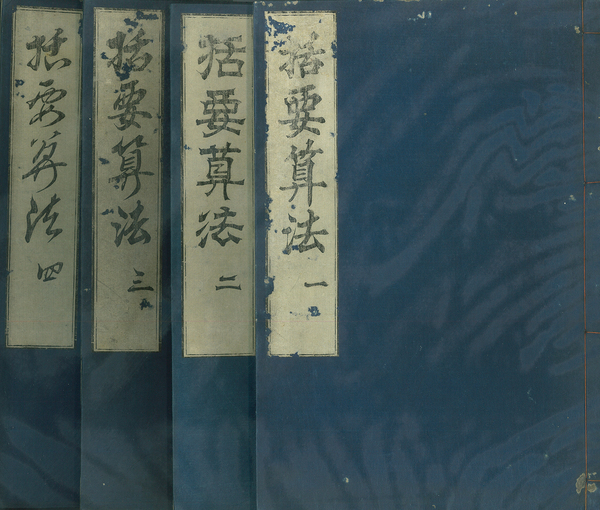 括要算法 一
括要算法 二
括要算法 三
括要算法 四